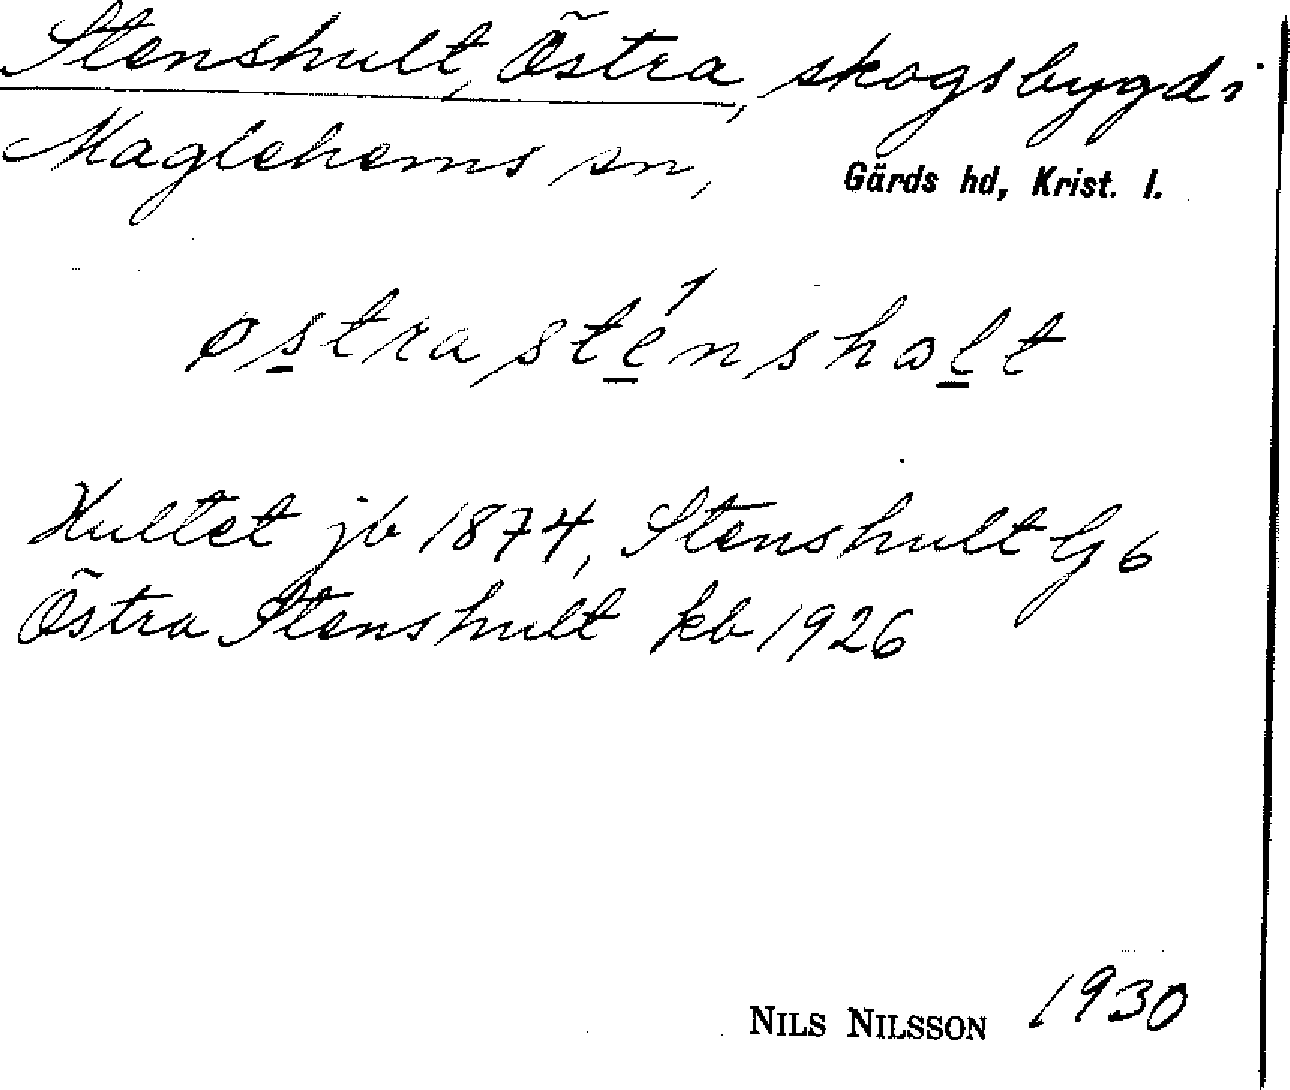 Stenshult, Östra, skogsbygd i
Maglehems sn, Gärds hd, Krist. l.
østrasténshɷlt
Hultet jb 1874, Stenshult G 6
Östra Stenshult kb 1926
NILS NILSSON 1930